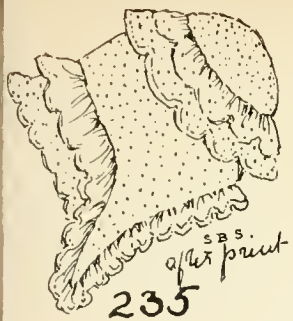 S B S.
after print
235